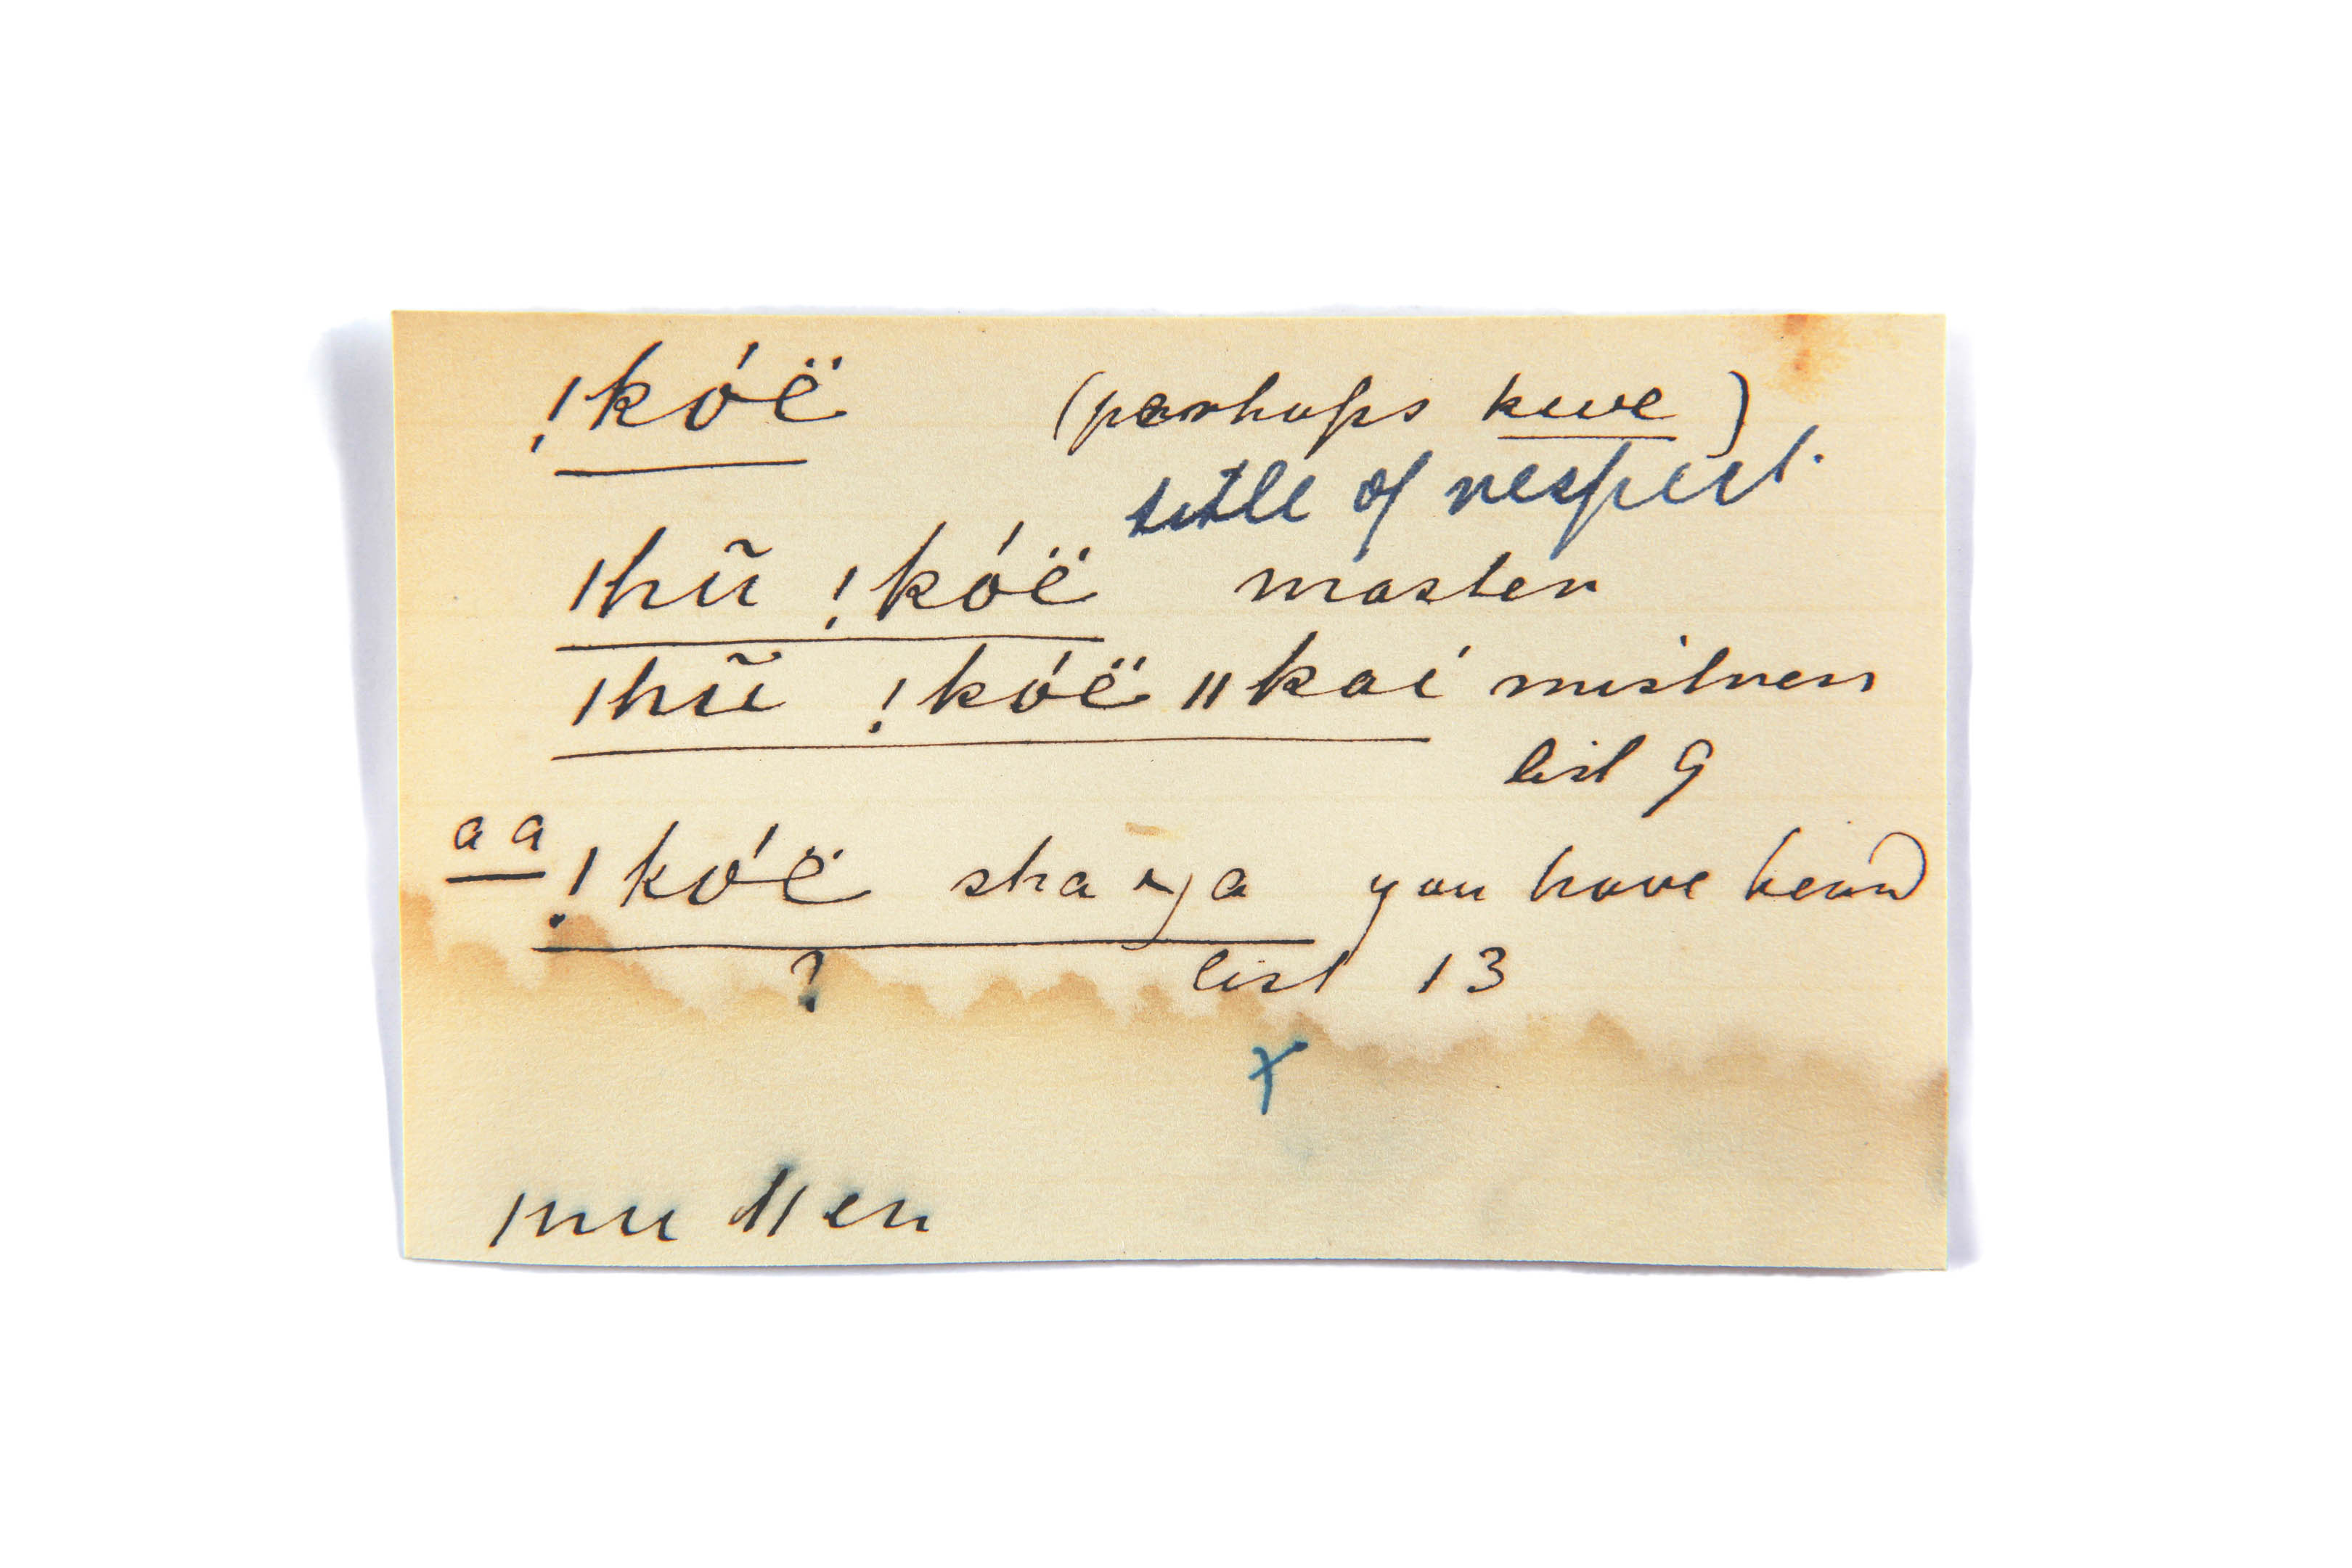 !kóë (perhaps kwe)
title of respect.
ǀhũ !kóë master
ǀhũ !kóë ǁkai mistress
list 9
aa !kóë sha ya you have heard
? list 13
x
ǀnu ǁen